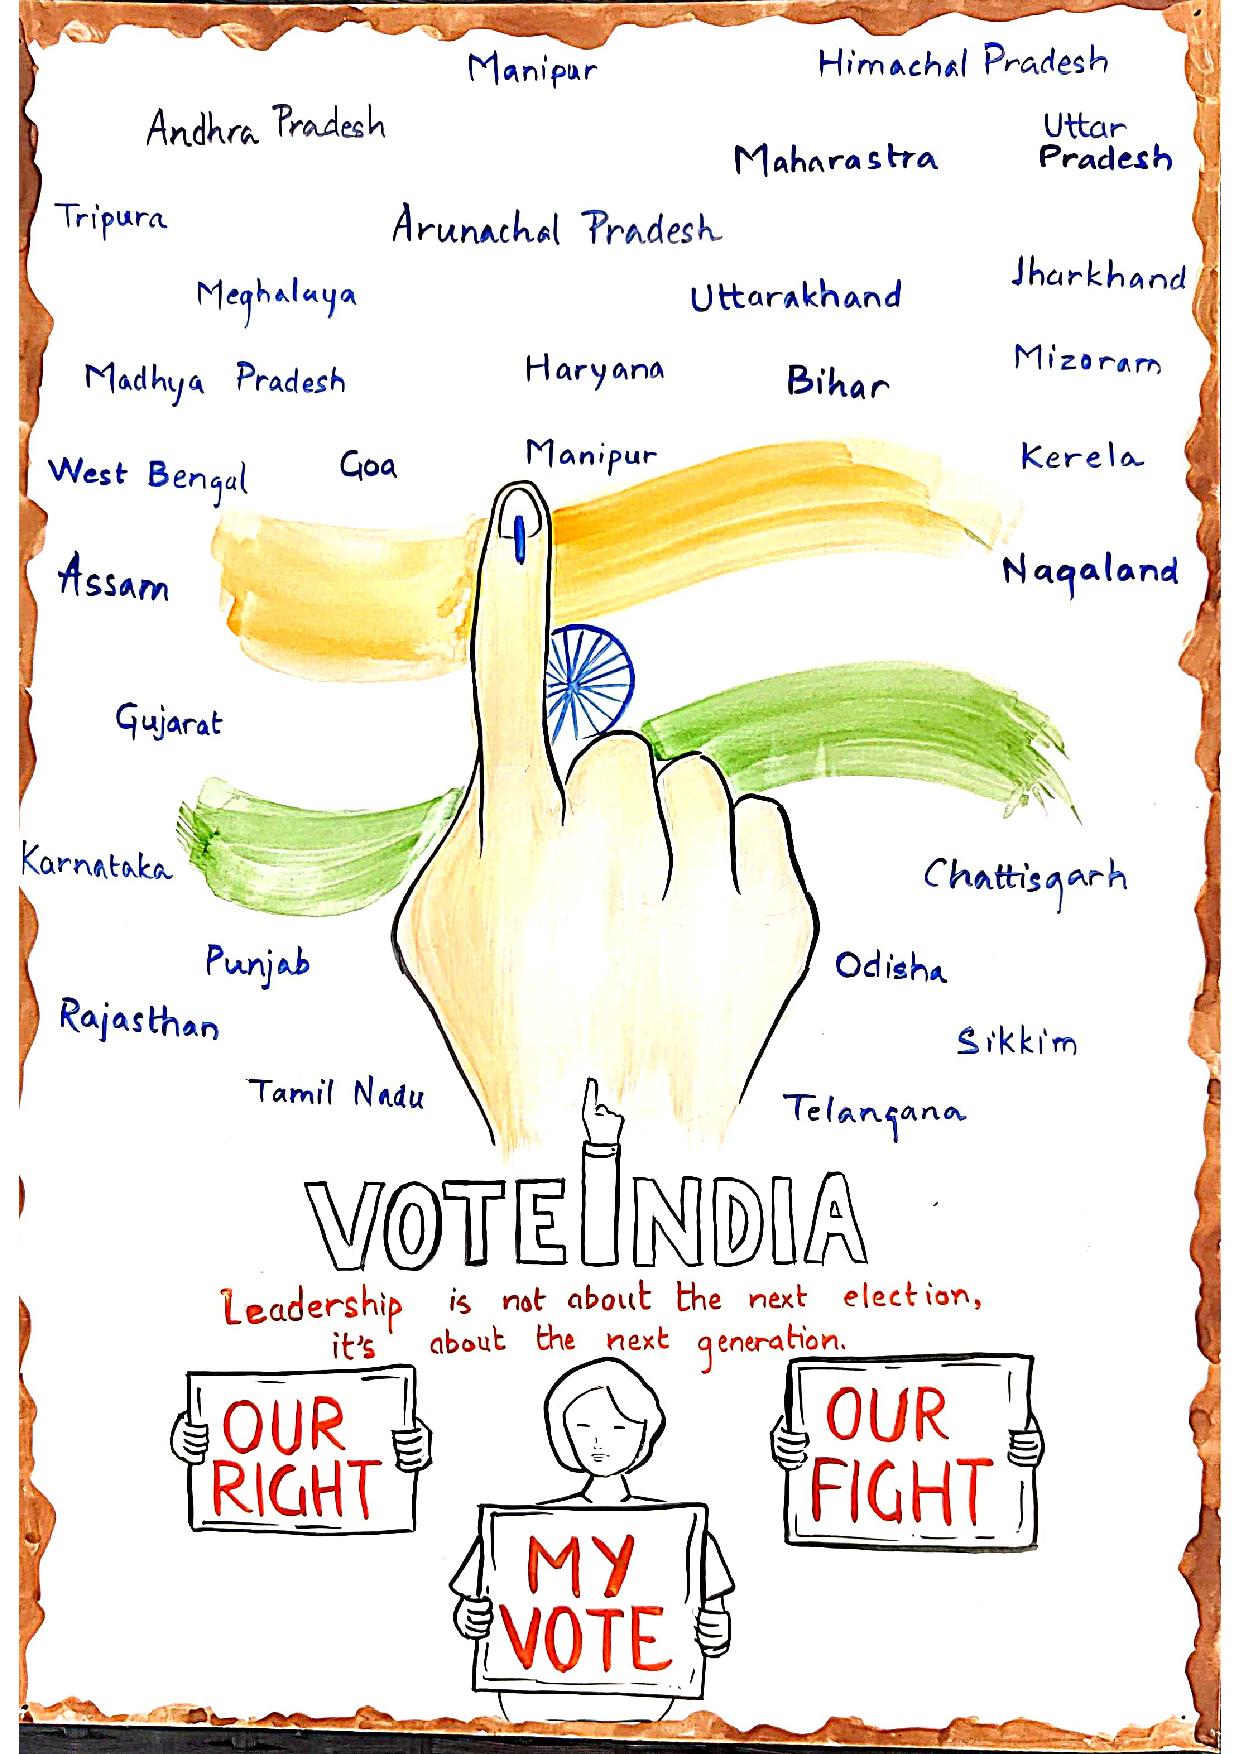 Manipur
Himachal Pradesh
Andhra Pradesh
Uttar
Pradesh
Maharastra
Tripura
Arunachal Pradesh
Meghalaya
Uttarakhand
Jharkhand
Madhya Pradesh
Haryana
Bihar
Mizoram
West Bengal
Goa
Manipur
Kerela
Assam
Nagaland
Gujarat
Karnataka
Chattisgarh
Punjab
Odisha
Rajasthan
Sikkim
Tamil Nadu
Telangana
VOTE INDIA
Leadership is not about the next election,
it's about the next generation.
OUR
RIGHT
OUR
FIGHT
MY
VOTE